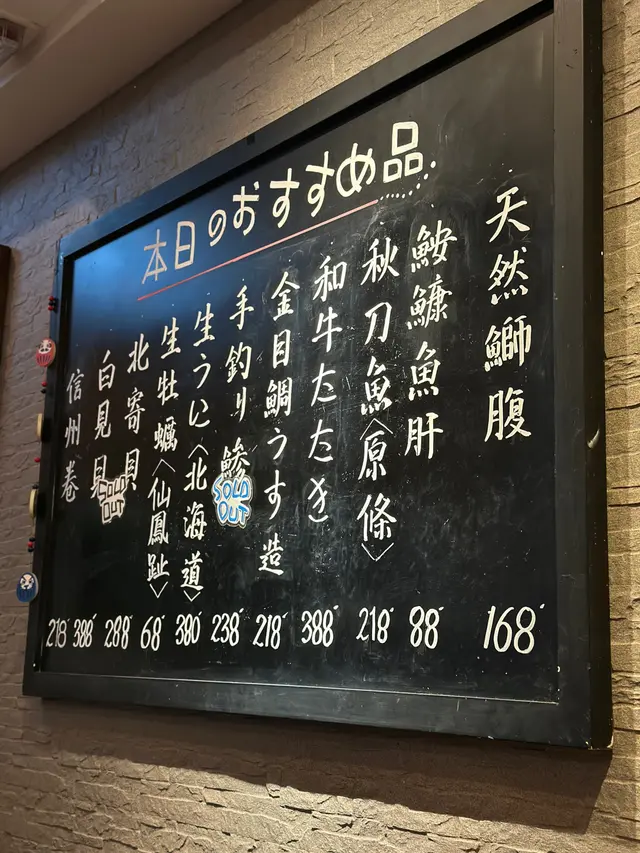 本日のおすすめ品
天然鰤腹
168
鮟鱇魚肝
88
秋刀魚〈原條〉
218
和牛たたき
388
金目鯛うす造
218
手釣り鯵
SOLD OUT
238
生うに〈北海道〉
380
生牡蠣〈仙鳳趾〉
68
北寄貝
288
白見貝
SOLD OUT
388
信州卷
218